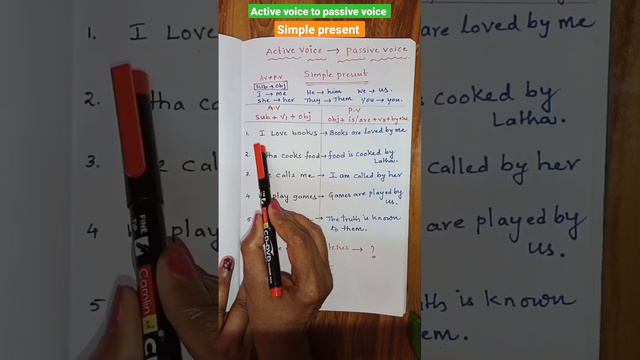 Active voice to passive voice
Simple present
Active voice → passive voice
A.V P.V
Simple present
Sub → obj
I → me He → him We → us.
She → her They → Them You → you.
A.V P.V
Sub + V1 + obj obj + is/are + V3 + by +
1. I Love books → Books are Loved by me
2. tha cooks food → food is cooked by Latha.
3. calls me → I am called by her
4. play games → Games are played by us.
5 → The truth is known to them.
→ ?
1. I Love
are Loved by me
2.
cooked by
3.
called by her
4
are played by
us.
5
th is known
em.
FINE
Camlin
CD-DVD